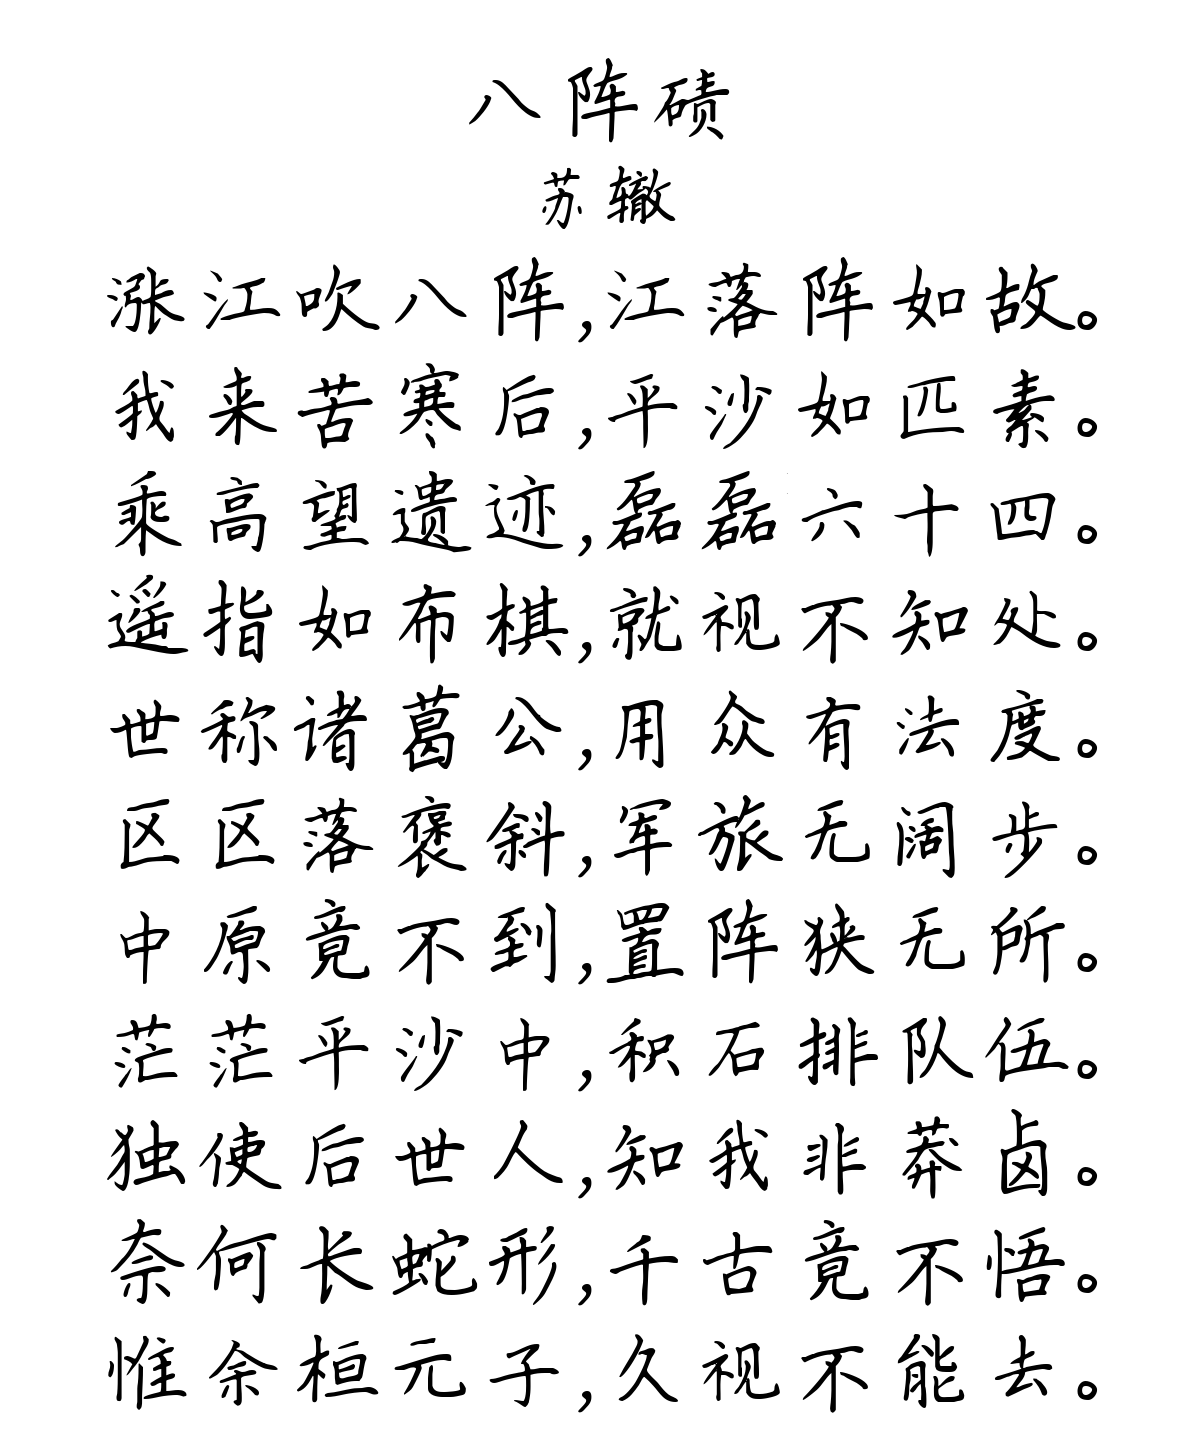 八阵碛
苏辙
涨江吹八阵,江落阵如故。
我来苦寒后,平沙如匹素。
乘高望遗迹,磊磊六十四。
遥指如布棋,就视不知处。
世称诸葛公,用众有法度。
区区落褒斜,军旅无阔步。
中原竟不到,置阵狭无所。
茫茫平沙中,积石排队伍。
独使后世人,知我非莽卤。
奈何长蛇形,千古竟不悟。
惟余桓元子,久视不能去。